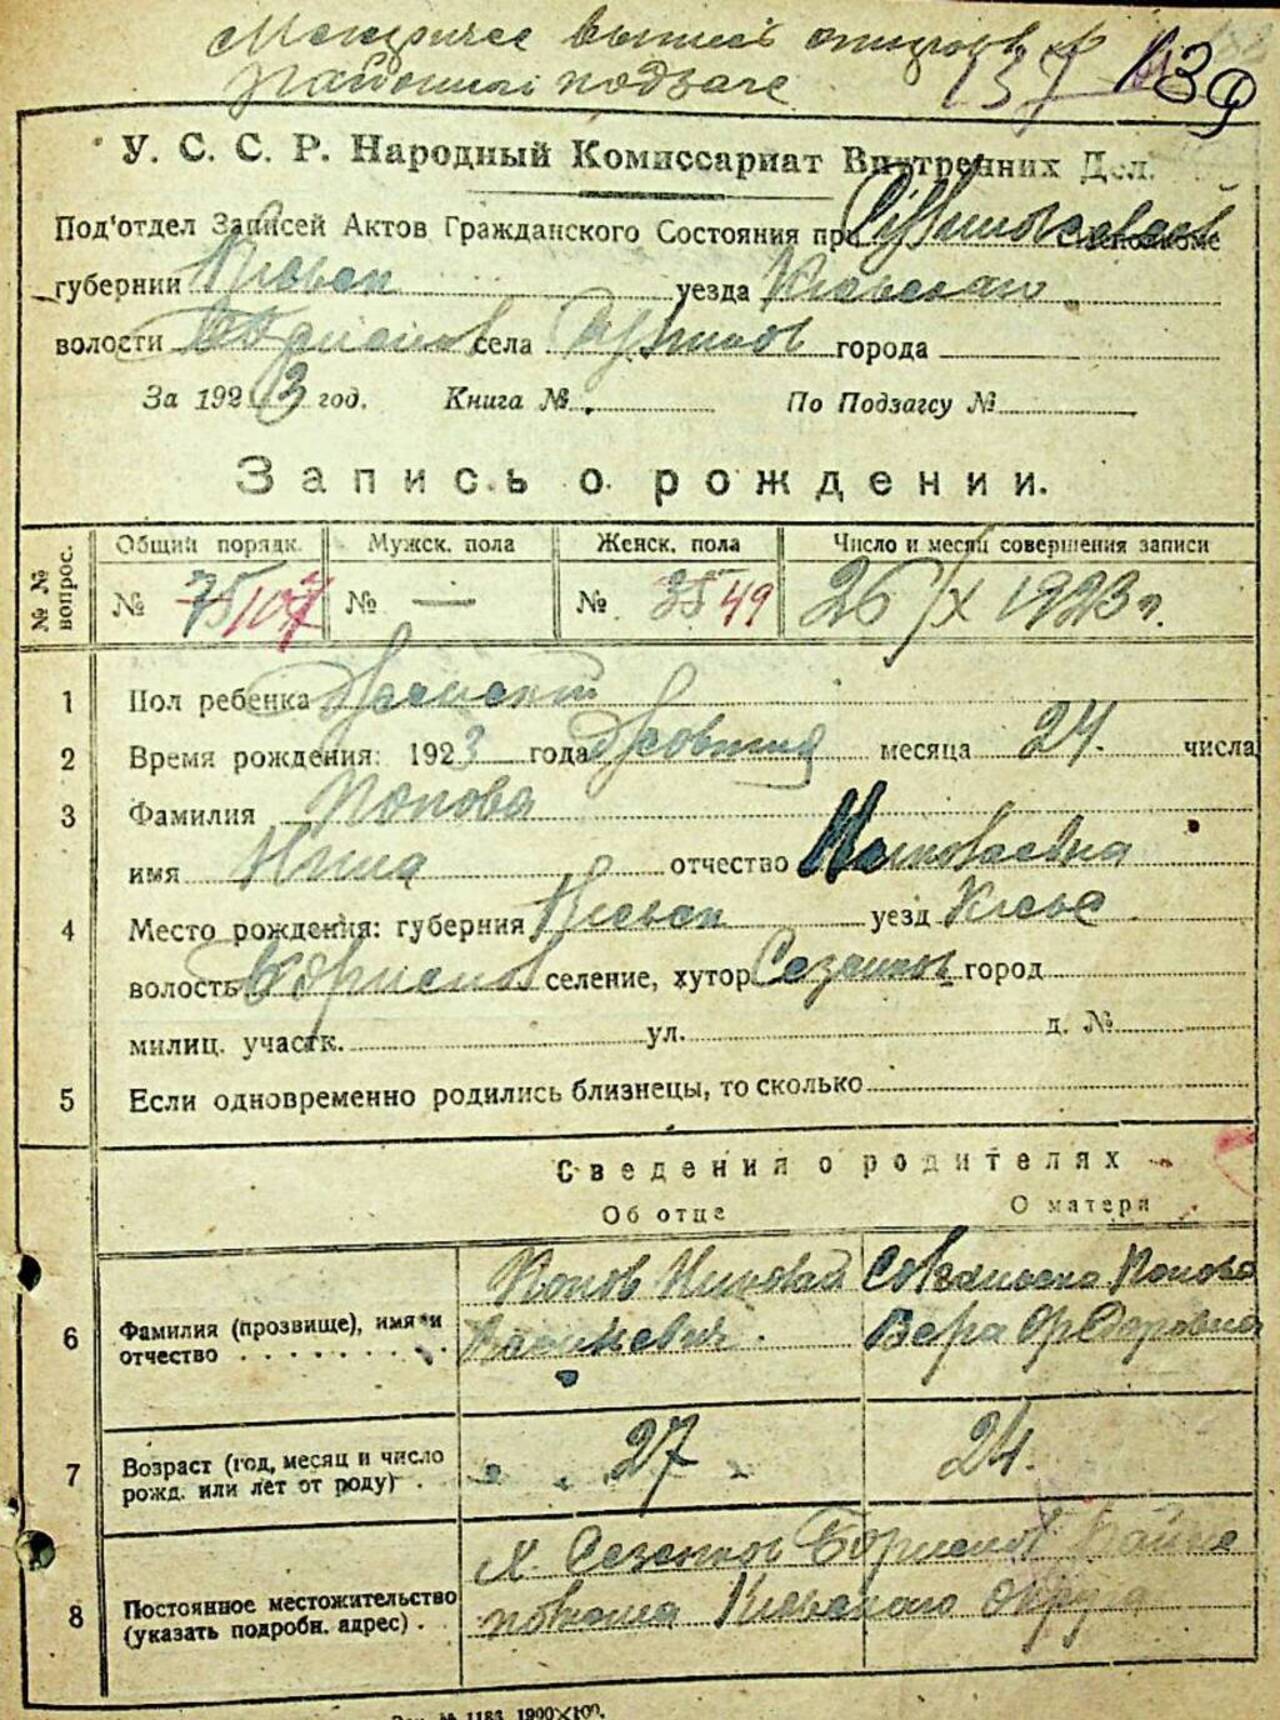 137 139
У. С. С. Р. Народный Комиссариат Внутренних Дел.
Под'отдел Записей Актов Гражданского Состояния при
губернии Киевск уезда Киевского
волости села города
За 1923 год. Книга № По Подзагсу №
Запись о рождении.
№ № вопрос.
Общий порядк. Мужск. пола Женск. пола Число и месяц совершения записи
№ 75 107 № — № 35 49 26/X 1923 г.
1 Пол ребенка Женский
2 Время рождения: 1923 года месяца 24. числа
3 Фамилия Попова
имя Нина отчество Николаевна
4 Место рождения: губерния Киевск уезд Киевс
волость селение, хутор Сезенков город
милиц. участк. ул. д. №
5 Если одновременно родились близнецы, то сколько
Сведения о родителях
Об отце О матери
6 Фамилия (прозвище), имя и отчество
Попов Николай Попова
Васильевич. Вера
7 Возраст (год, месяц и число рожд. или лет от роду)
27 24.
8 Постоянное местожительство (указать подробн. адрес)
х. Сезенков
Киевского округа
№ 1183 1900×100.